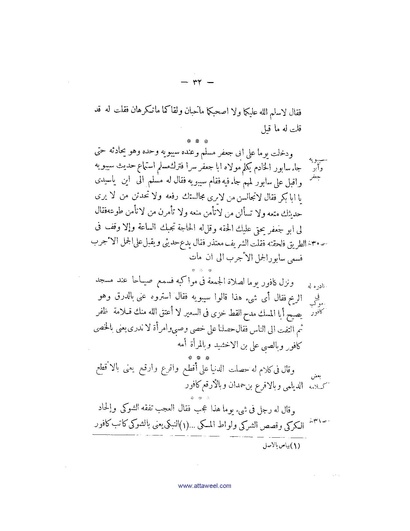 — ٣٢ —
فقال لاسلم الله عليكما ولا اصحبكما ماتحبان ولقاكما ماتكرهان فقلت له قد
قلت له ما قيل
* * *
ودخلت يوما على ابى جعفر مسلم وعنده سيبويه وحده وهو يحادثه حتى
سيبويه وأبو جعفر
جاء سابور الخادم يكلم مولاه ابا جعفر سرا فترك مسلم استماع حديث سيبويه
واقبل على سابور لمهم جاء فيه فقام سيبويه فقال له مسلم الى اين ياسيدى
يا ابا بكر فقال لاتجالسن من لايرى مجالستك رفعة ولا تحدثن من لا يرى
حديثك متعة ولا تسألن من لاتأمن منعه ولا تأمرن من لاتأمن طوعه فقال
لى ابو جعفر بحق عليك الحقه وقل له الحاجة تجيك الساعة وإلا وقف فى
الطريق فلحقته فقلت الشريف معتذر فقال يدع حديثى ويقبل على الجمل الاجرب
ص ٣٠
فسمى سابور الجمل الاجرب الى ان مات
* * *
ونزل كافور يوما لصلاة الجمعة فى مواكبه فسمع صياحا عند مسجد
نادرة له فى موكب كافور
الريح فقال أى شىء هذا قالوا سيبويه فقال استروه عنى بالدرق وهو
يصيح أيا المسك مدح القط خزى فى السعير لا أعتق الله منك قلامة ظفر
ثم التفت الى الناس فقال حصلنا على خصى وصبى وامرأة لاندرى يعنى بالخصى
كافور وبالصبى على بن الاخشيد وبالمرأة أمه
* * *
وقال فى كلام له حصلت الدنيا على أقطع واقرع وارقع يعنى بالاقطع
بعض كلامه
الديلمى وبالاقرع بن حمدان وبالارقع كافور
* * *
وقال له رجل فى شىء يوما هذا عجب فقال العجب تفقه الشوكى وإلحاد
الكركى وقصص الشركى ولواط المسكى ...(١) النبكى يعنى بالشوكى كاتب كافور
ص ٣١
(١) بياض بالاصل
www.attaweel.com